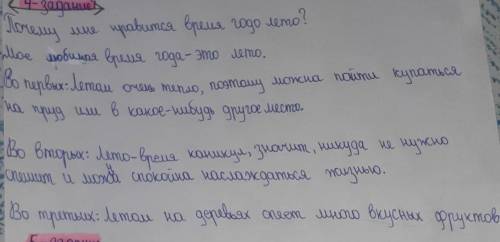 4-задание
Почему мне нравится время годо лето?
Мое любимая время года-это лето.
Во первых: Летам очень тепло, поэтому можна пойти купаться
на пруд или в какое-нибудь другое место.
Во вторых: Лето-время каникул, значит, никуда не нужно
спешит и можна спокойна наслаждаться жизнью.
Во третьих: Летам на деревьях спеет много вкусных фруктов
5-задание